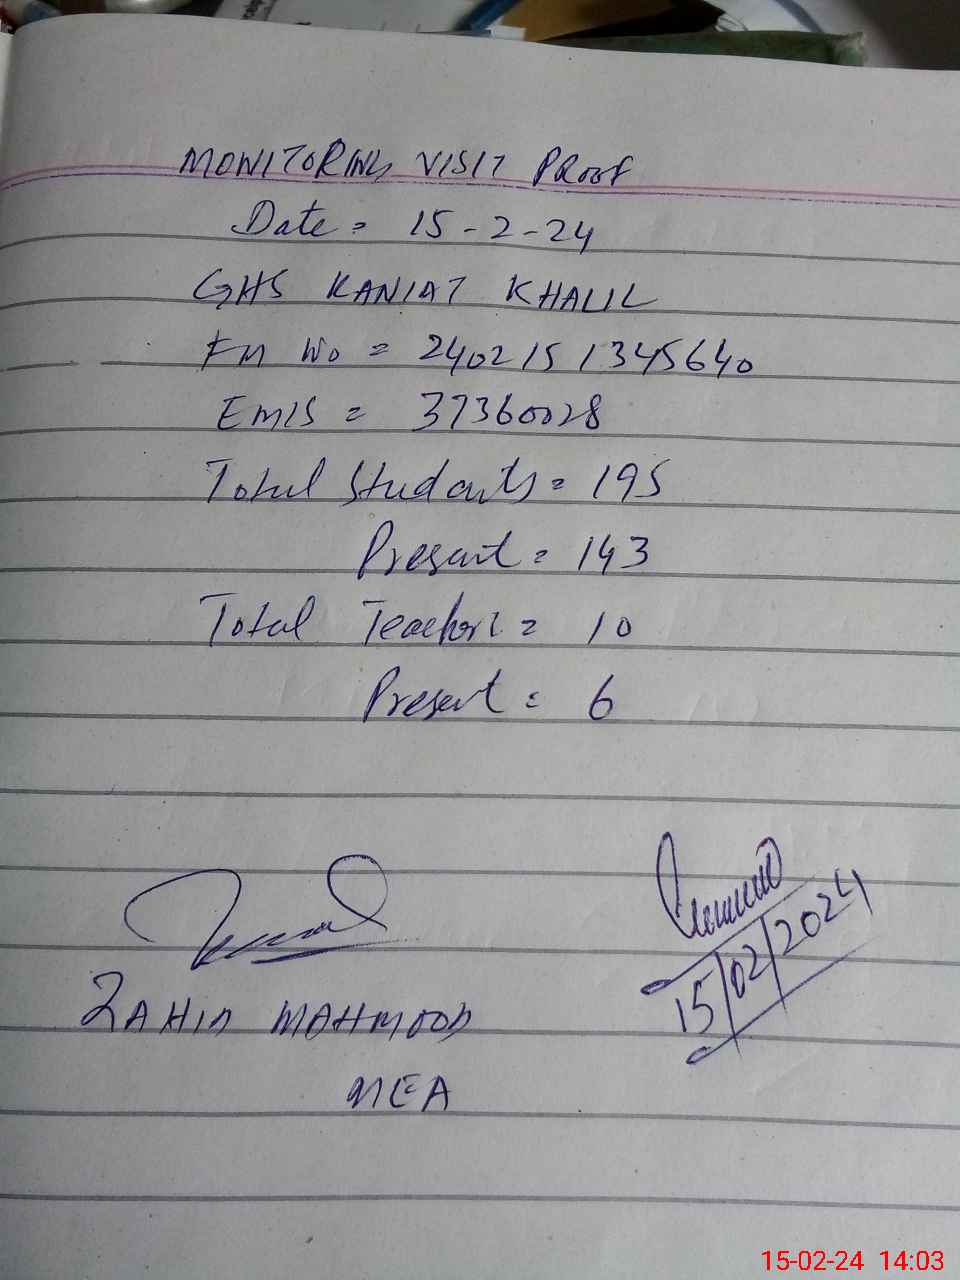 MONITORING VISIT PROOF
Date = 15-2-24
GHS KANIAT KHALIL
FM No = 2402151345640
EMIS = 37360028
Total Students = 195
Present = 143
Total Teachers = 10
Present = 6
ZAHID MAHMOOD
MEA
15/02/2024
15-02-24 14:03